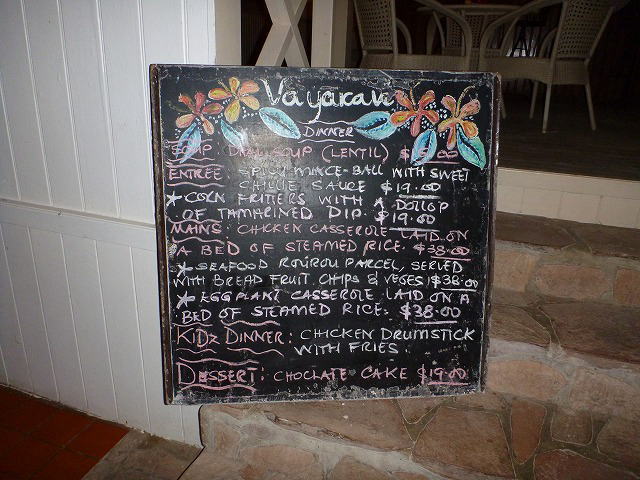 Vayaran
DINNER
SOUP DHAL SOUP (LENTIL)
ENTREE: SPICY MINCE-BALL WITH SWEET
CHILLIE SAUCE $19.00
* CORN FRITTERS WITH A DOLLOP
OF TAMARINED DIP. $19.00
MAINS: CHICKEN CASSEROLE LAID ON
A BED OF STEAMED RICE. $38.00
* SEAFOOD ROUROU PARCEL, SERVED
WITH BREAD FRUIT CHIPS & VEGES $38.00
* EGGPLANT CASSEROLE LAID ON A
BED OF STEAMED RICE. $38.00
KIDz DINNER: CHICKEN DRUMSTICK
WITH FRIES.
DESSERT: CHOCLATE CAKE $19.00